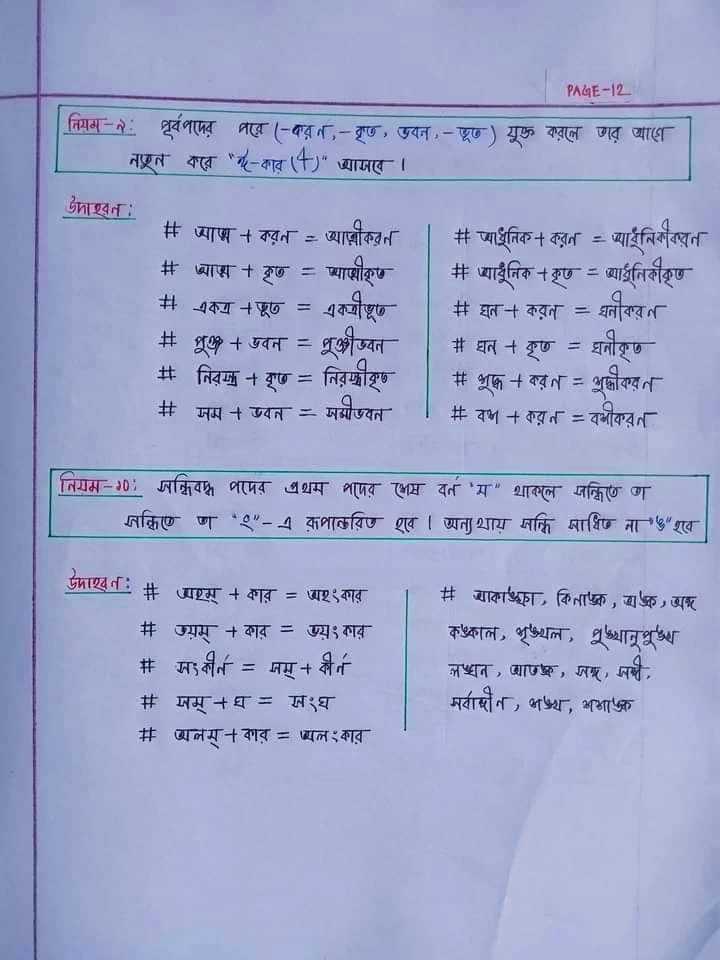 PAGE-12
নিয়ম-৯: পূর্বপদের পরে (-করন, -কৃত, ভবন, -ভূত) যুক্ত করলে তার আগে
নতুন করে "ঈ-কার (ী)" আসবে।
উদাহরন:
# আত্ম + করন = আত্মীকরন
# আত্ম + কৃত = আত্মীকৃত
# একত্র + ভূত = একত্রীভূত
# পুঞ্জ + ভবন = পুঞ্জীভবন
# নিরস্ত্র + কৃত = নিরস্ত্রীকৃত
# সম + ভবন = সমীভবন
# আধুনিক + করন = আধুনিকীকরন
# আধুনিক + কৃত = আধুনিকীকৃত
# ঘন + করন = ঘনীকরন
# ঘন + কৃত = ঘনীকৃত
# শুদ্ধ + করন = শুদ্ধীকরন
# বশ + করন = বশীকরন
নিয়ম-১০: সন্ধিবদ্ধ পদের প্রথম পদের শেষ বর্ন "ম" থাকলে সন্ধিতে তা
সন্ধিতে তা "ং"-এ রূপান্তরিত হবে। অন্যথায় সন্ধি সাধিত না "ঙ" হবে
উদাহরন:
# অহম্ + কার = অহংকার
# ভয়ম্ + কার = ভয়ংকার
# সংকীর্ন = সম্ + কীর্ন
# সম্ + ঘ = সংঘ
# অলম্ + কার = অলংকার
# আকাঙ্ক্ষা, কিনাঙ্ক, অঙ্ক, অঙ্গ
কঙ্কাল, শৃঙ্খল, পুঙ্খানুপুঙ্খ
লঙ্ঘন, আতঙ্ক, সঙ্গ, সঙ্গী,
সর্বাঙ্গীন, শঙ্খ, শশাঙ্ক